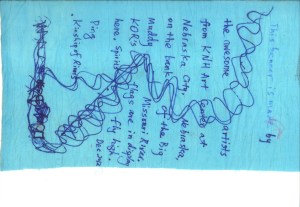 This banner is made by
the awesome artists
from KNH Art Center at
Nebraska City, Nebraska
on the bank of the Big
Muddy Missouri River.
KOR's flags are in display
here. Spirit fly high.
Ping
Kinship of Rivers